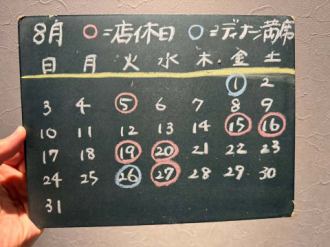 8月 ○=店休日 ○=ディナー満席
日 月 火 水 木 金 土
1 2
3 4 5 6 7 8 9
10 11 12 13 14 15 16
17 18 19 20 21 22 23
24 25 26 27 28 29 30
31